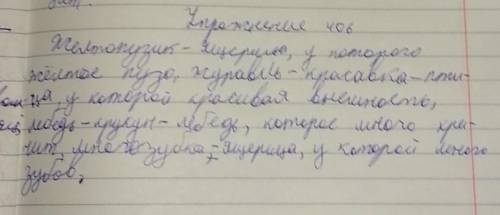 Упражнение 406
Желтопузик - ящерица, у которого
жёлтое пузо, журавль - красавка - пти-
ца, у которой красивая внешность,
лебедь - кликун - лебедь, которое много кри-
чит, многозубка - ящерица, у которой много
зубов,